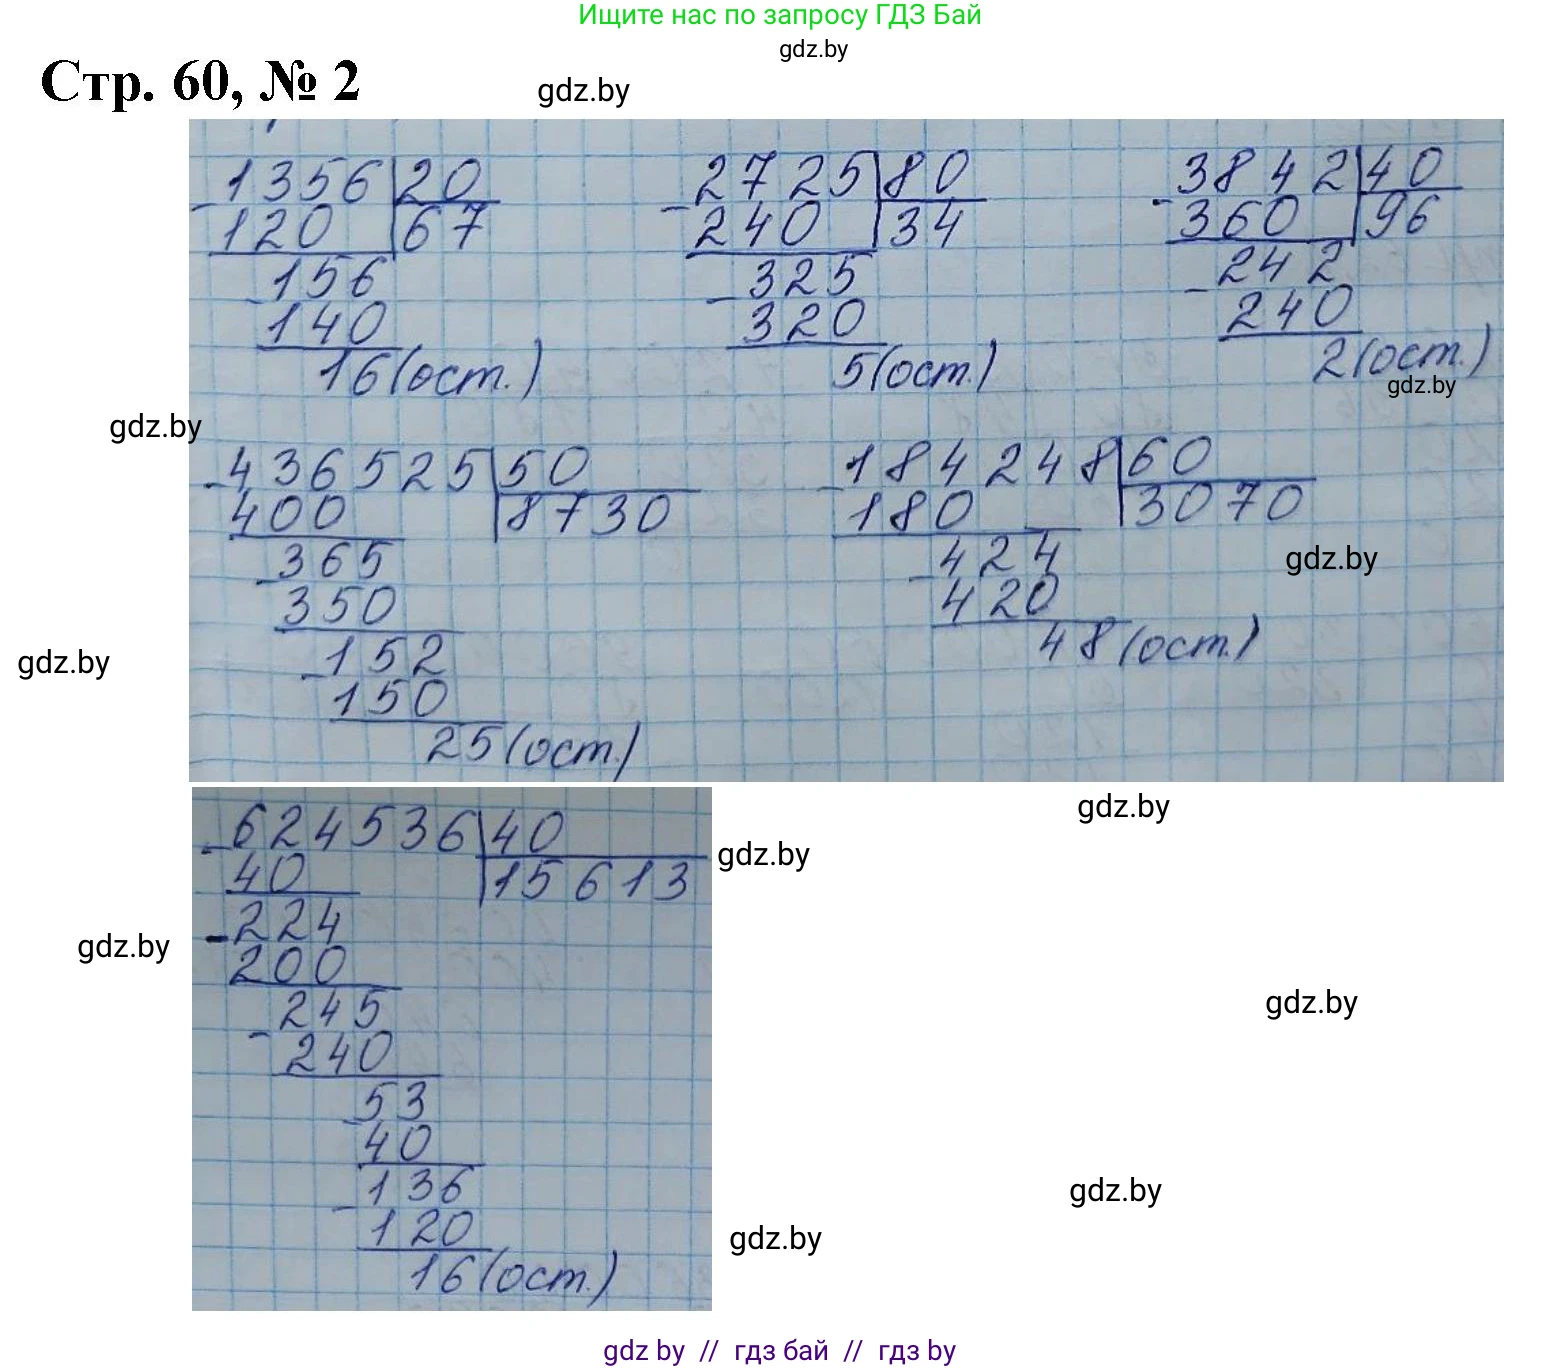 Ищите нас по запросу ГДЗ Бай
gdz.by
Стр. 60, № 2
gdz.by
1356 20
- 120 67
156
- 140
16 (ост.)
2725 80
- 240 34
325
- 320
5 (ост.)
3842 40
- 360 96
242
- 240
2 (ост.)
gdz.by
gdz.by
436525 50
- 400 8730
365
- 350
152
- 150
25 (ост.)
184248 60
- 180 3070
424
- 420
48 (ост.)
gdz.by
gdz.by
gdz.by
624536 40
- 40 15613
224
- 200
245
- 240
53
- 40
136
- 120
16 (ост.)
gdz.by
gdz.by
gdz.by
gdz.by
gdz.by
gdz by // гдз бай // гдз by